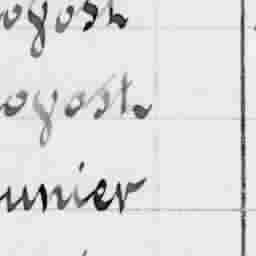 ogost
ogost.
unier